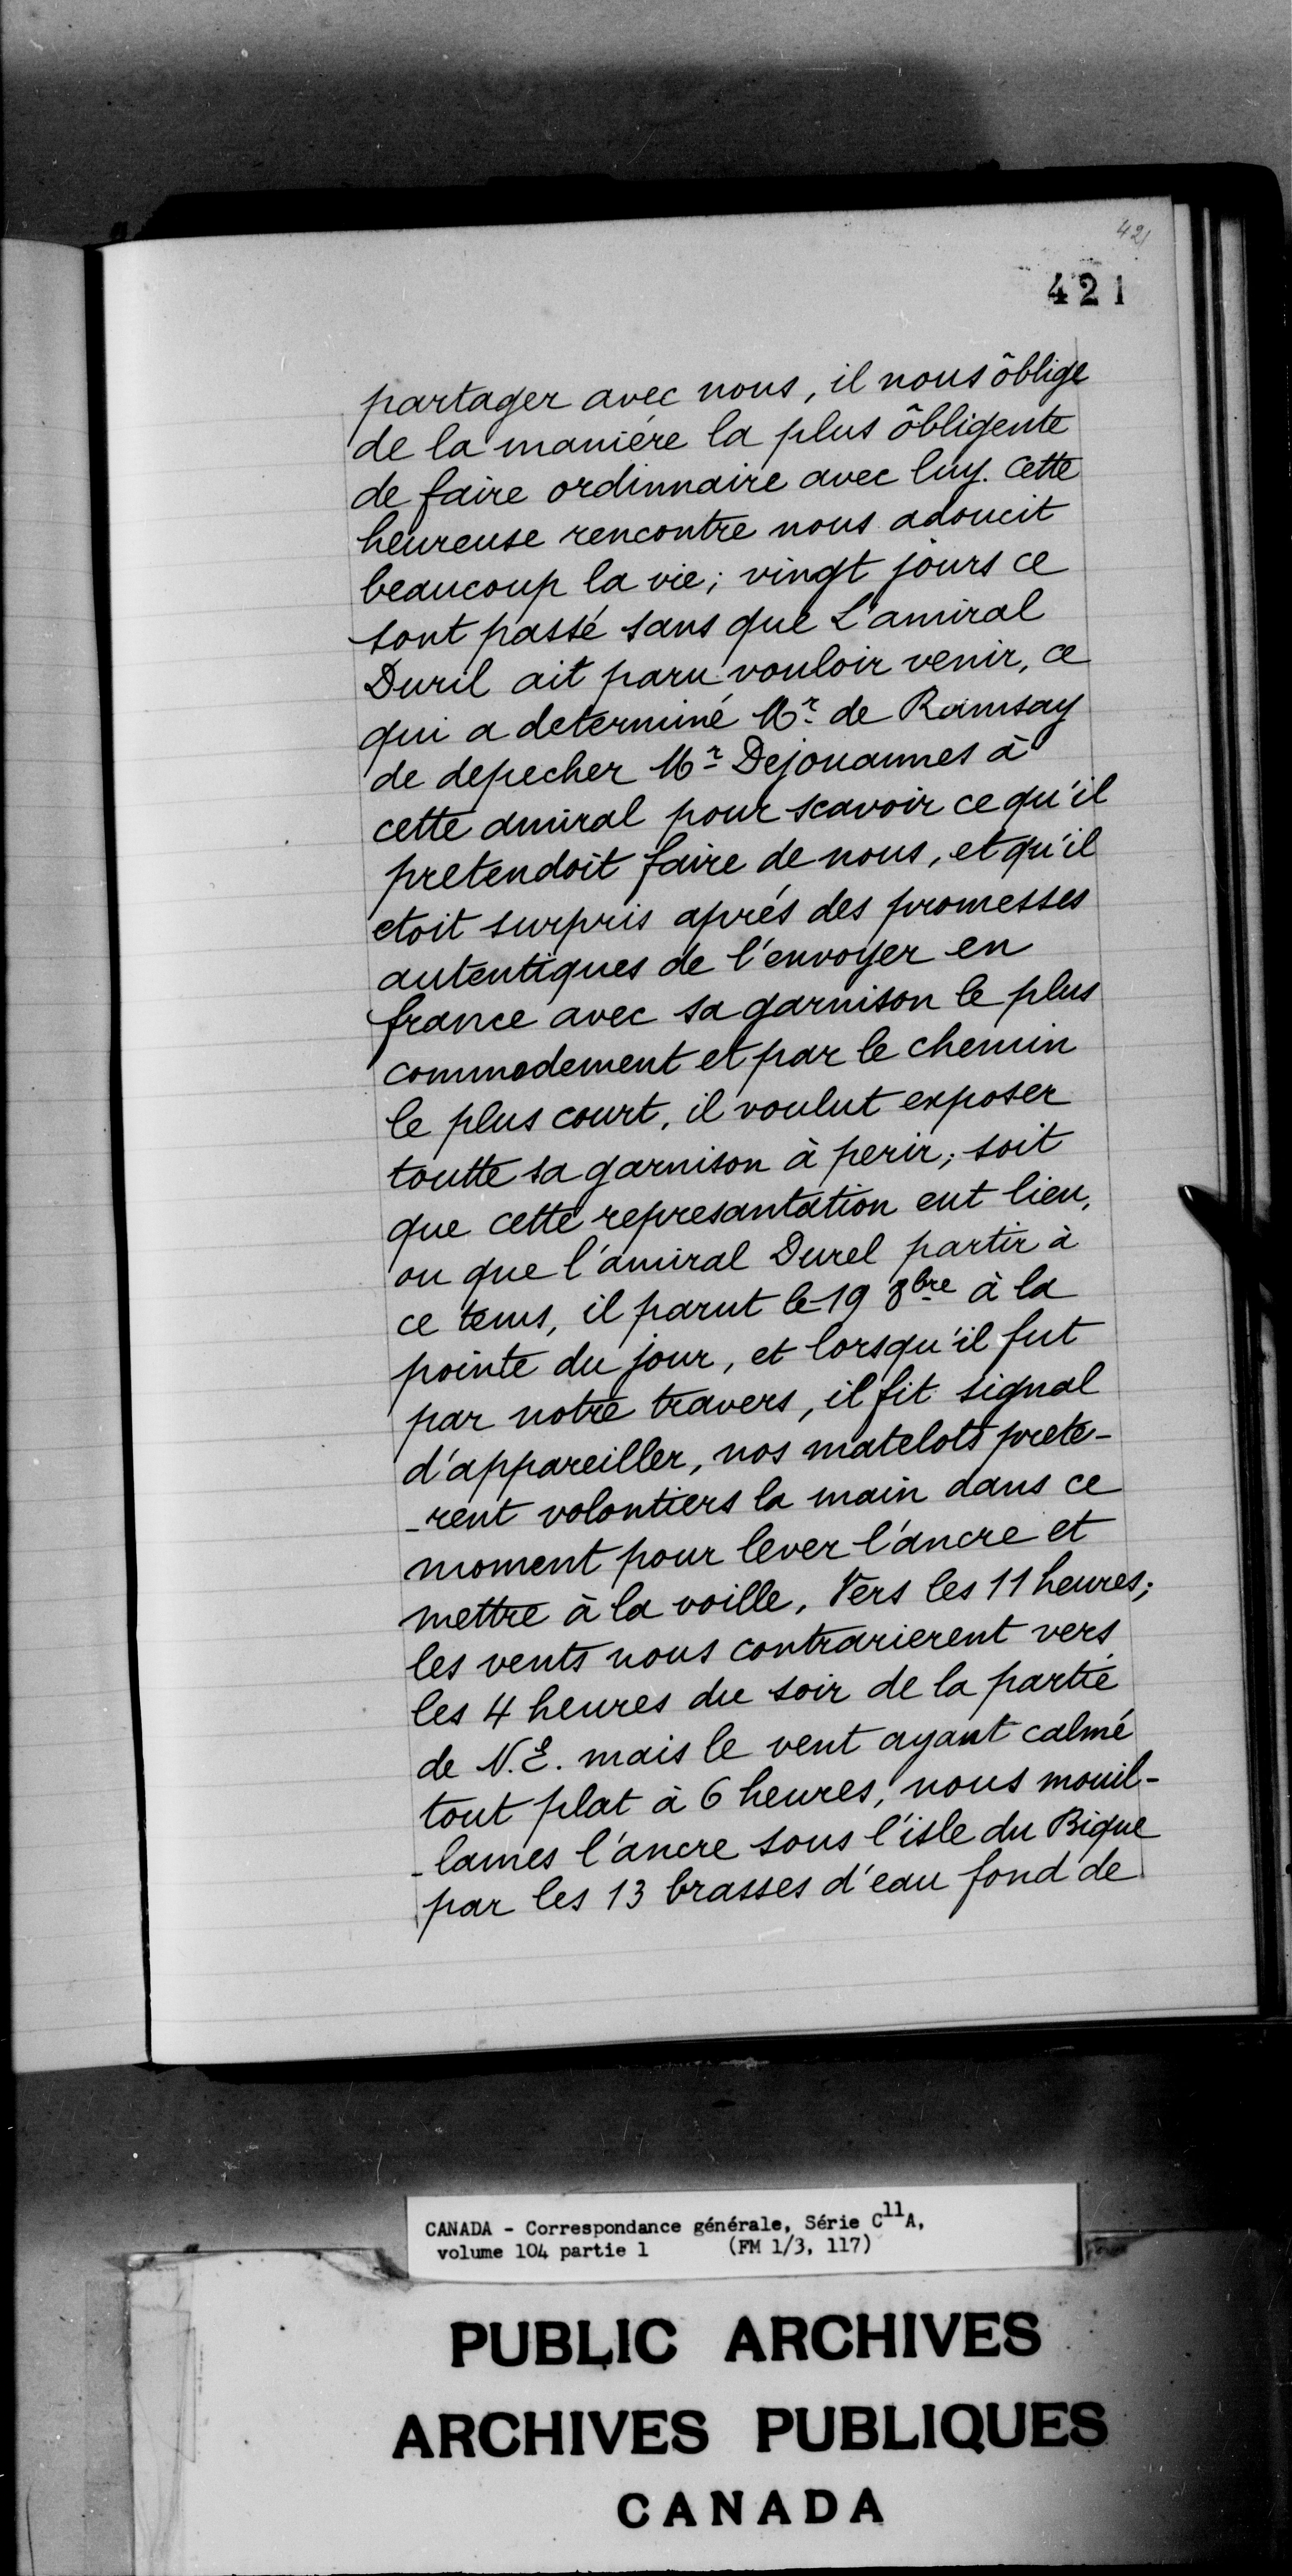 421
421
partager avec nous, il nous ôblige
de la maniére la plus ôbligente
de faire ordinnaire avec luy. Cette
heureuse rencontre nous adoucit
beaucoup la vie; vingt jours ce
sont passé sans que L'amiral
Duril ait paru vouloir venir, ce
qui a determiné Mr. de Ramsay
de depecher Mr. Dejouannes à
cette amiral pour scavoir ce qu'il
pretendoit faire de nous, et qu'il
etoit surpris aprés des promesses
autentiques de l'envoyer en
france avec sa garnison le plus
commodement et par le chemin
le plus court, il voulut exposer
toutte sa garnison à perir; soit
que cette represantation eut lieu,
ou que l'amiral Durel partir à
ce tems, il parut le 19 8bre à la
pointe du jour, et lorsqu'il fut
par notre travers, il fit signal
d'appareiller, nos matelots prete-
-rent volontiers la main dans ce
moment pour lever l'ancre et
mettre à la voille, Vers les 11 heures;
les vents nous contrarierent vers
les 4 heures du soir de la partie
de N.E. mais le vent ayant calmé
tout plat à 6 heures, nous mouil-
-lames l'ancre sous l'isle du Bique
par les 13 brasses d'eau fond de
CANADA - Correspondance générale, Série C11A,
volume 104 partie 1 (FM 1/3, 117)
PUBLIC ARCHIVES
ARCHIVES PUBLIQUES
CANADA